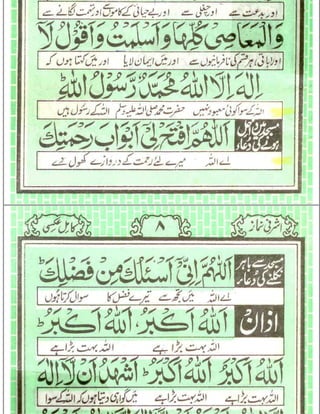 اور بدعت سے اور چغلی سے اور بے حیائی کے کاموں سے اور تہمت لگانے سے
وَالْمَعَاصِیْ كُلِّهَا وَاَسْلَمْتُ وَاَقُوْلُ لَا
اور باقی ہر قسم کی نافرمانیوں سے اور میں ایمان لایا اور میں کہتا ہوں کہ
اِلٰهَ اِلَّا اللهُ مُحَمَّدٌ رَّسُوْلُ اللهِ
اللہ کے سوا کوئی معبود نہیں حضرت محمد صلی اللہ علیہ وسلم اللہ کے رسول ہیں
مسجد میں داخل ہونے کی دعاء
اَللّٰهُمَّ افْتَحْ لِیْ اَبْوَابَ رَحْمَتِكَ
اے اللہ میرے لئے رحمت کے دروازے کھول دے
اشرفی نماز ۸ کامل عکسی
مسجد سے باہر نکلنے کی دعاء
اَللّٰهُمَّ اِنِّیْ اَسْئَلُكَ مِنْ فَضْلِكَ
اے اللہ میں تجھ سے تیرے فضل کا سوال کرتا ہوں
اذان اَللهُ اَكْبَرُ اَللهُ اَكْبَرُ
اللہ بہت بڑا ہے اللہ بہت بڑا ہے
اَللهُ اَكْبَرُ اَللهُ اَكْبَرُ اَشْهَدُ اَنْ لَّا اِلٰهَ
اللہ بہت بڑا ہے اللہ بہت بڑا ہے میں گواہی دیتا ہوں کہ اللہ کے سوا